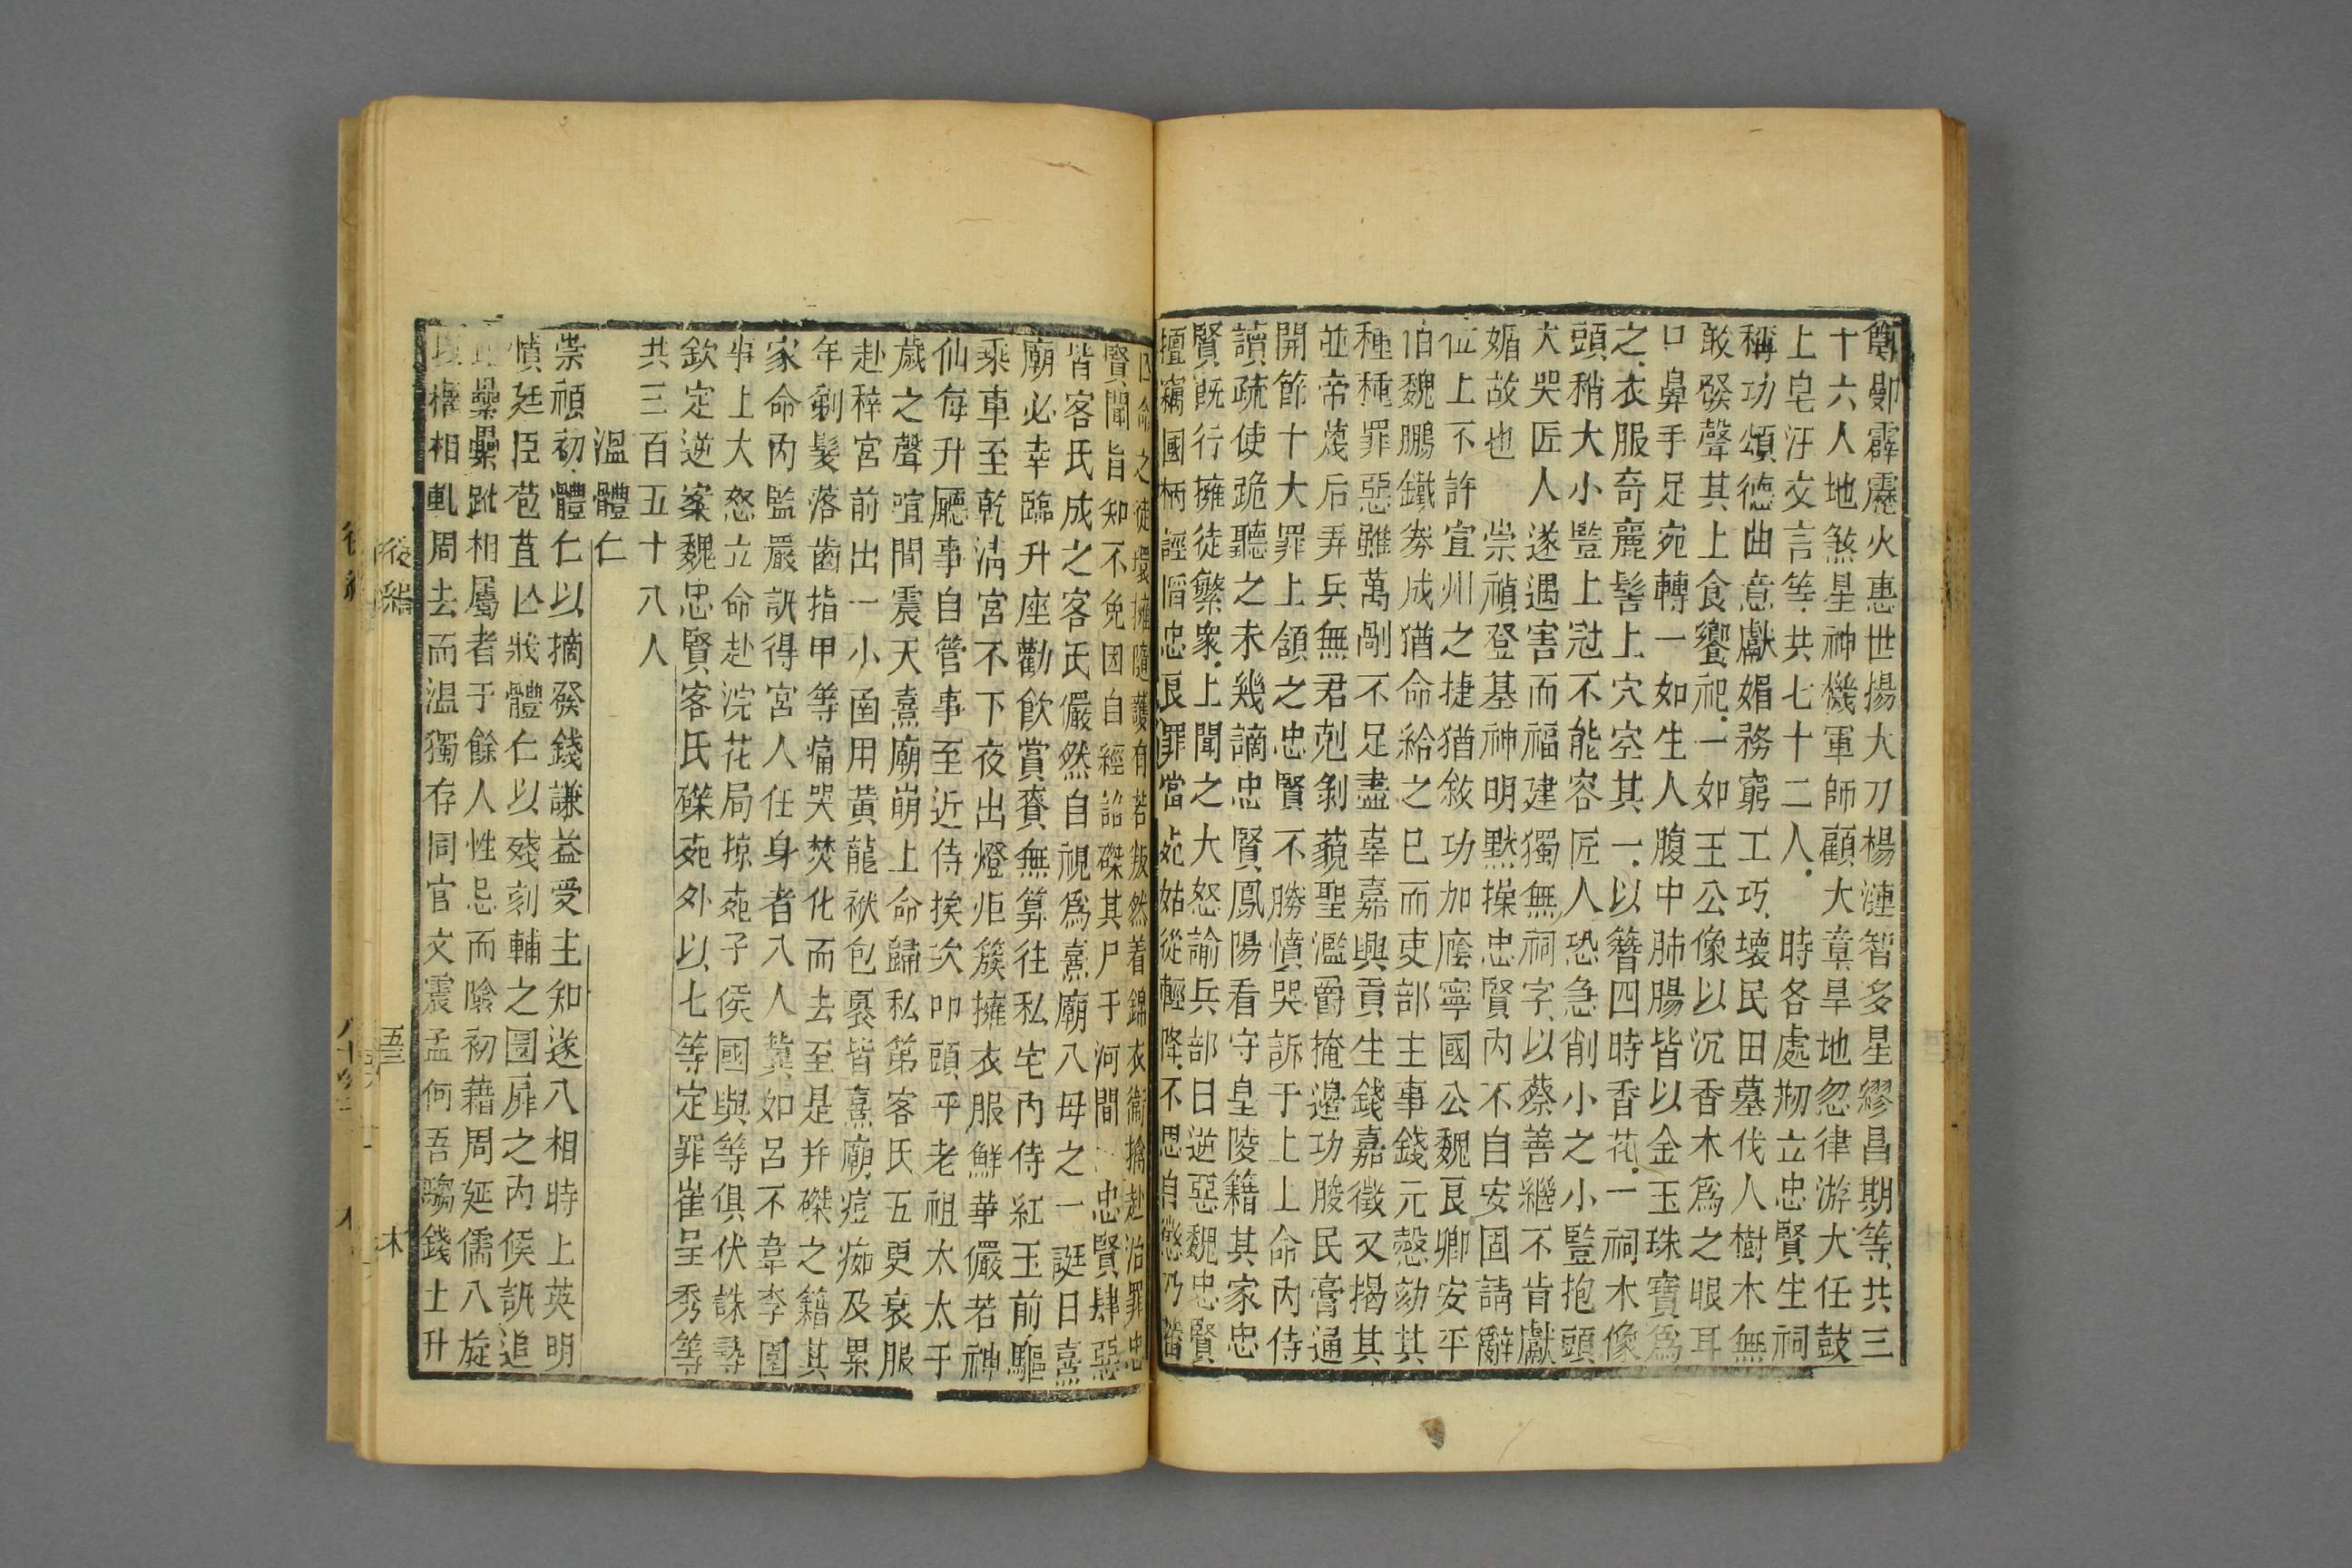 鄖霹靂火惠世揚大刀楊漣智多星繆昌期等共三
十六人地煞星神機軍師顧大章旱地忽律游大任鼓
上皂汪文言等共七十二人時各處刱立忠賢生祠
稱功頌德曲意獻媚務窮工巧壞民田墓伐人樹木無
敢發聲其上食饗祀一如王公像以沉香木為之眼耳
口鼻手足宛轉一如生人腹中肺腸皆以金玉珠寶為
之衣服奇麗髻上穴空其一以簪四時香花一祠木像
頭稍大小豎上冠不能容匠人恐急削小之小豎抱頭
大哭匠人遂遇害而福建獨無祠字以蔡善繼不肯獻
媚故也　崇禎登基神明默操忠賢內不自安固請辭
位上不許宜州之捷猶敘功加廕寧國公魏良卿安平
伯魏鵬鐵券成猶命給之已而吏部主事錢元慤劾其
種種罪惡雖萬剮不足盡辜嘉興貢生錢嘉徵又揭其
並帝蔑后弄兵無君剋剝藐聖濫爵掩邊功朘民膏通
開節十大罪上頷之忠賢不勝憤哭訴于上上命內侍
讀疏使跪聽之未幾謫忠賢鳳陽看守皇陵籍其家忠
賢既行擁徒繁衆上聞之大怒諭兵部曰逆惡魏忠賢
擅竊國柄誣陷忠良罪當死姑從輕降不思自懲乃蓄
亡命之徒環擁隨護有若叛然着錦衣衞擒赴治罪忠
賢聞旨知不免因自經詔磔其尸于河間　忠賢肆惡
皆客氏成之客氏儼然自視為熹廟八母之一誕日熹
廟必幸臨升座勸飲賞賚無算往私宅內侍紅玉前驅
乘車至乾清宮不下夜出燈炬簇擁衣服鮮華儼若神
仙每升廳事自管事至近侍挨次叩頭乎老祖太太于
歲之聲喧閧震天熹廟崩上命歸私第客氏五更衰服
赴梓宮前出一小函用黃龍袱包裹皆熹廟痘痂及累
年剃髮落齒指甲等痛哭焚化而去至是并磔之籍其
家命內監嚴訊得宮人任身者八人冀如呂不韋李園
事上大怒立命赴浣花局掠死子侯國與等俱伏誅尋
欽定逆案魏忠賢客氏磔死外以七等定罪崔呈秀等
共三百五十八人
溫體仁
崇禎初體仁以摘發錢謙益受主知遂入相時上英明
憤廷臣苞苴亡狀體仁以殘刻輔之圜扉之內候訊追
纍纍趾相屬者于餘人性忌而陰初藉周延儒入旋
以權相軋周去而溫獨存同官文震孟何吾騶錢士升